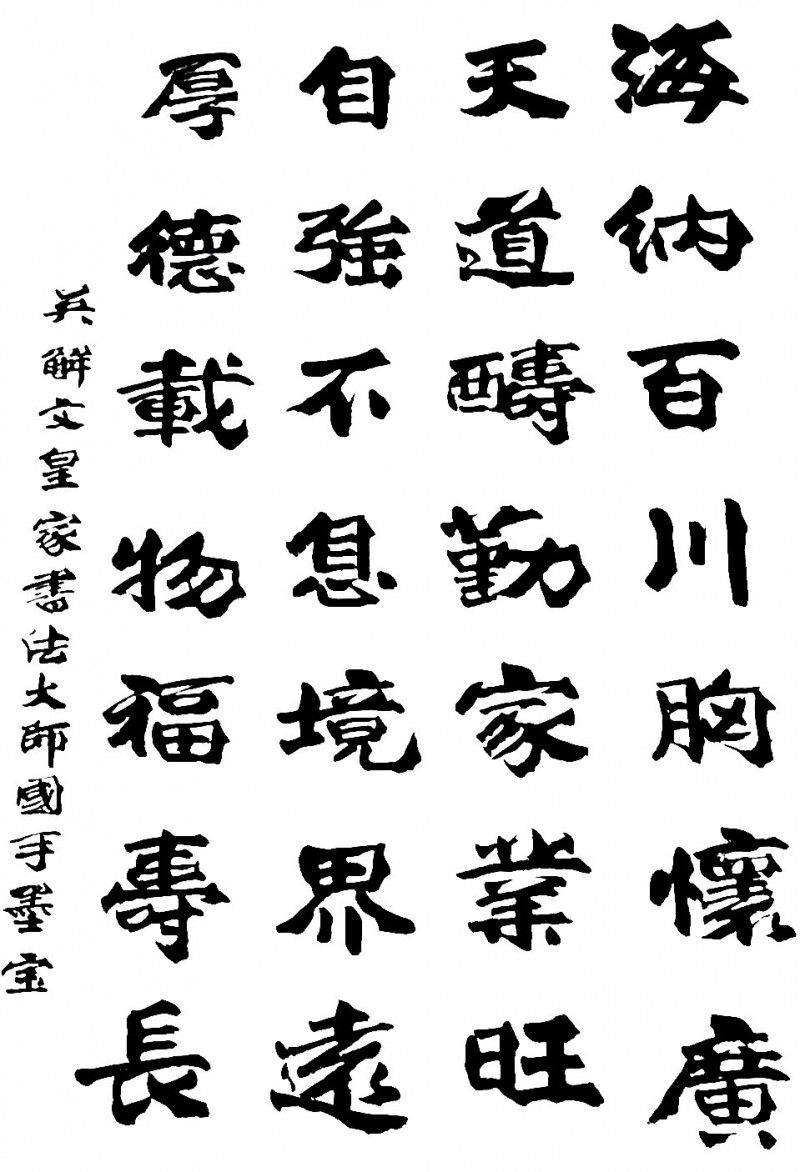 海納百川胸懷廣
天道醻勤家業旺
自強不息境界遠
厚德載物福壽長
英解文皇家書法大師國手墨宝